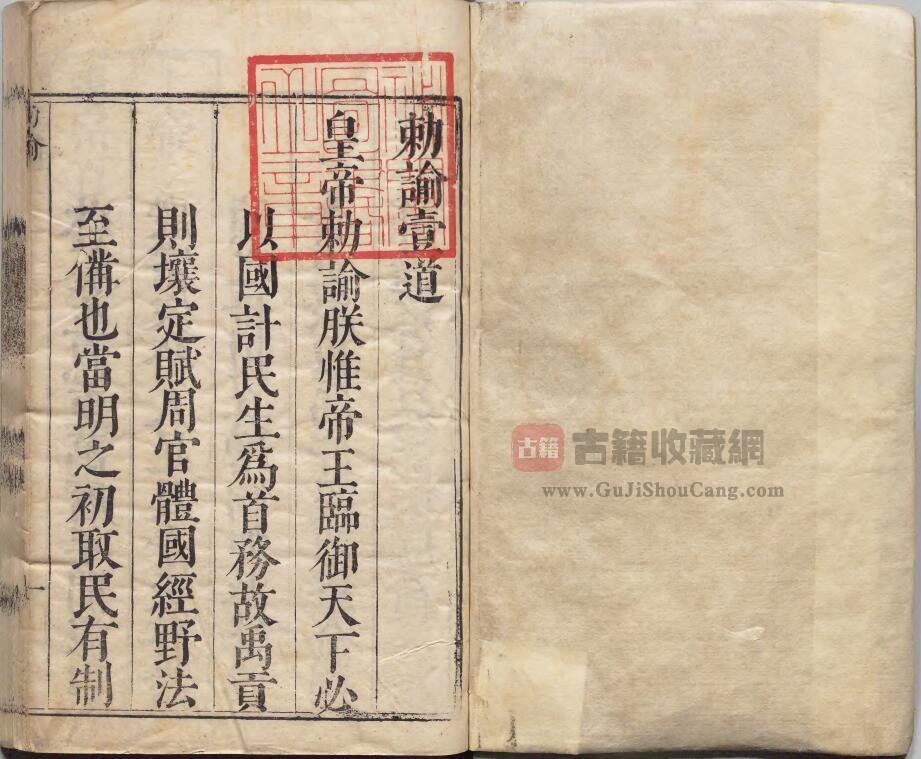 勅諭壹道
皇帝勅諭朕惟帝王臨御天下必
以國計民生爲首務故禹貢
則壤定賦周官體國經野法
至備也當明之初取民有制
一
古籍
古籍收藏網
www.GuJiShouCang.com